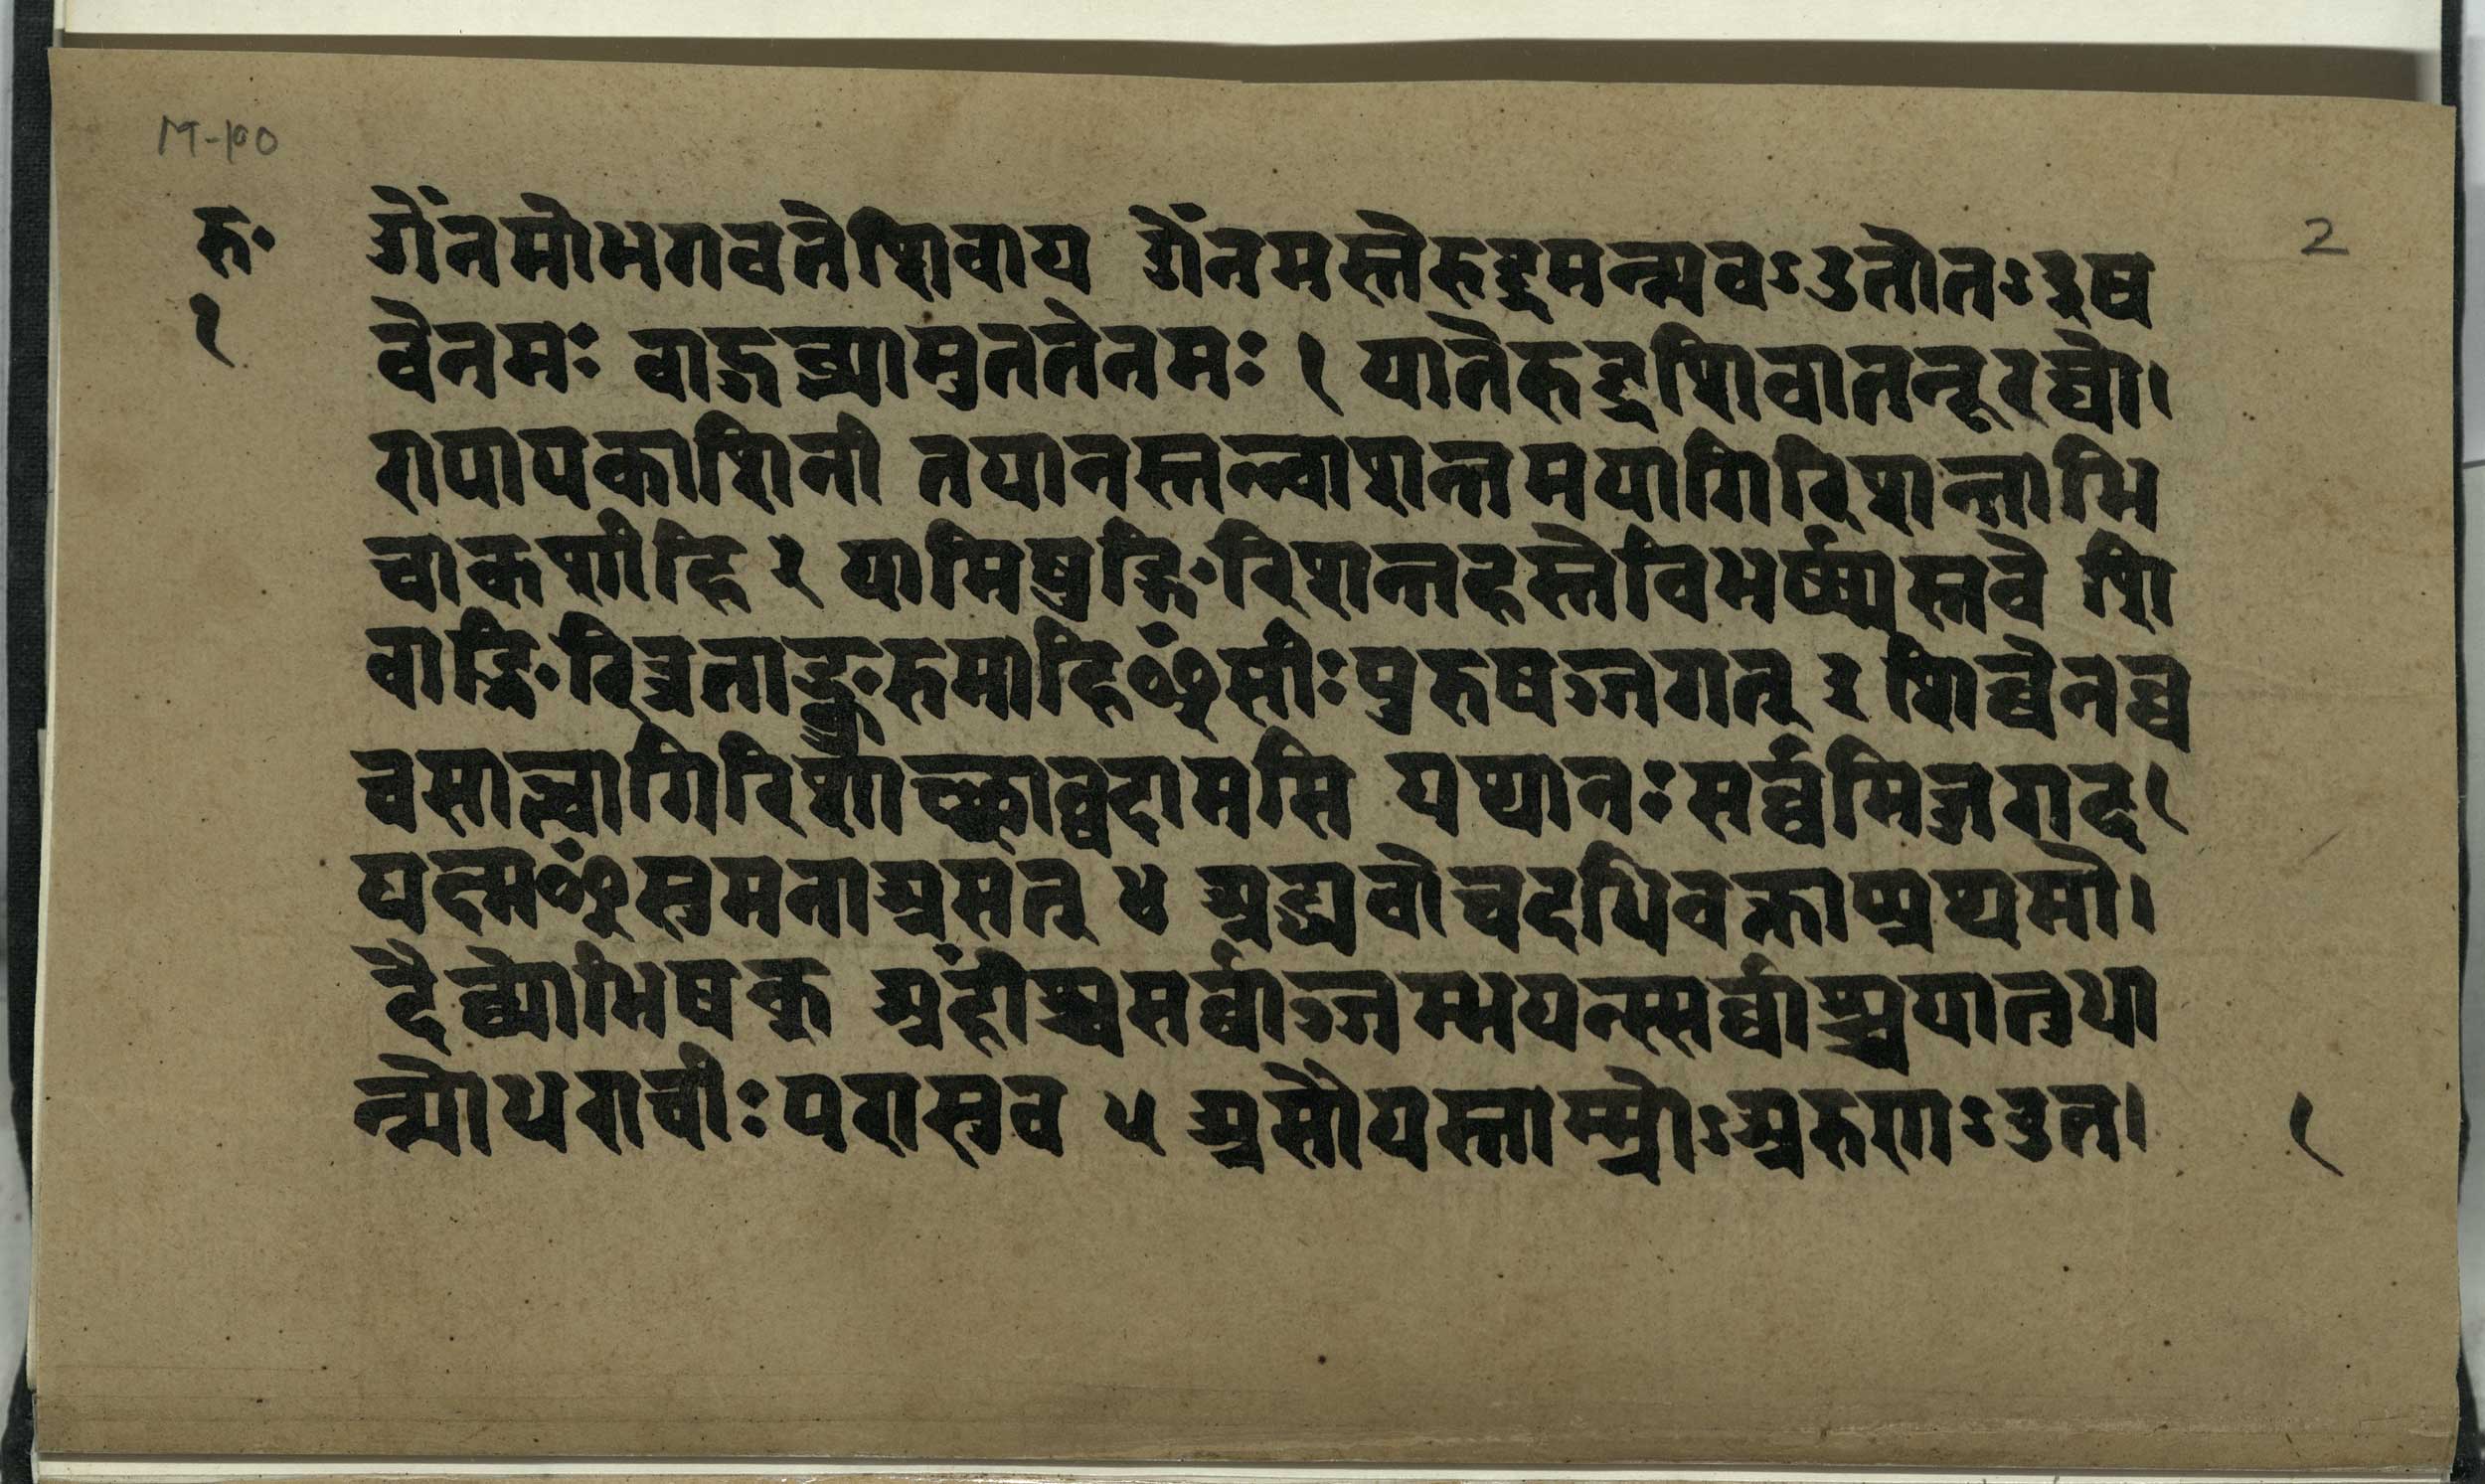 M-100
रु॰ ॐनमोभगवतेशिवाय ॐनमस्तेरुद्रमन्यवऽउतोतऽइष 2
१ वेनमः बाहुब्भ्यामुततेनमः १ यातेरुद्रशिवातनूरघो।
रापापकाशिनी तयानस्तन्वाशन्तमयागिरिशन्ताभि
चाकशीहि २ यामिषुङ्गि॰रिशन्तहस्तेविभर्ष्यस्तवे शि
वाङ्गि॰रित्रताङ्कु॰रुमाहिꣳसीःपुरुषञ्जगत् ३ शिवेनव
चसात्त्वागिरिशाच्छाव्वदामसि यथानःसर्व्वमिज्जगद।
यक्ष्मꣳसुमनाअसत् ४ अद्ध्यवोचदधिवक्ताप्प्रथमो।
दैव्योभिषक् अहींश्चसर्व्वाञ्जम्भयन्त्सर्व्वाश्चयातुधा
न्योधराचीःपरासुव ५ असौयस्ताम्म्रोऽअरुणऽउत। १